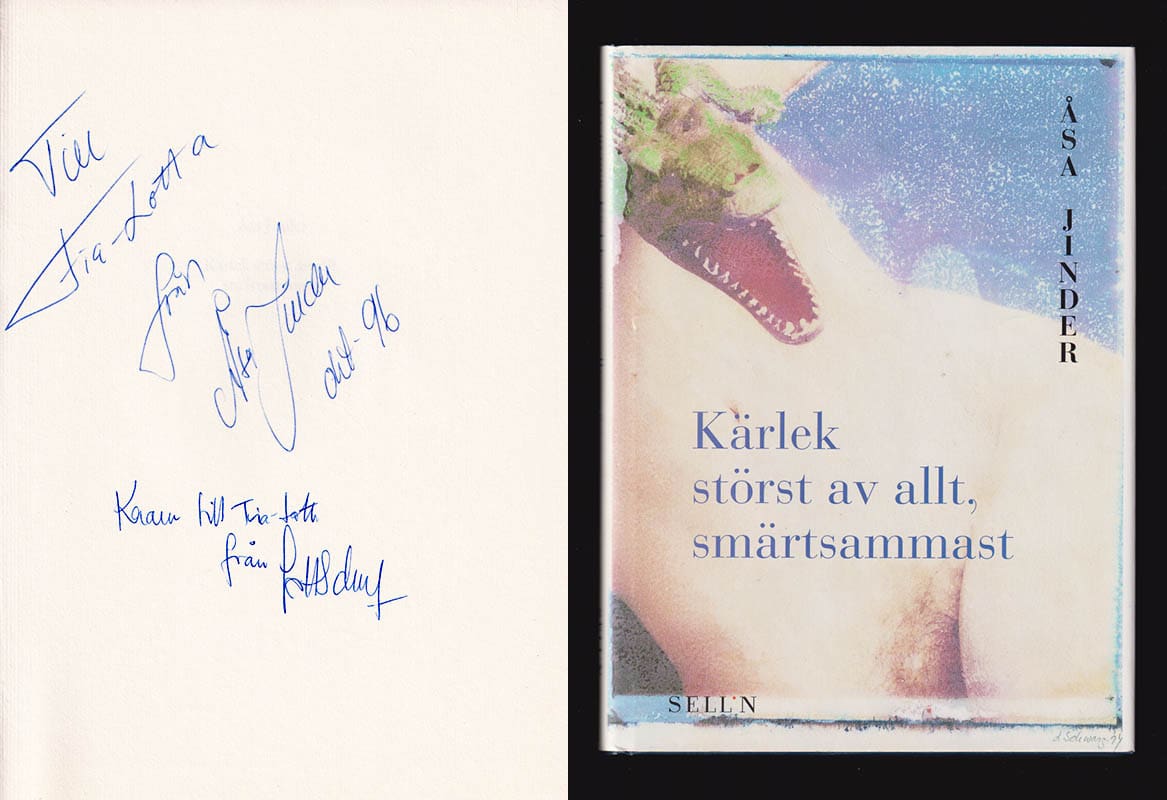 Till
Fia-Lotta
från
Åsa Jinder
okt-96
Kram till Fia-Lotta
från
ÅSA JINDER
Kärlek
störst av allt,
smärtsammast
SELLIN